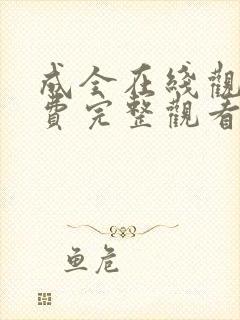 成全在线觀
費完整觀看
鱼危